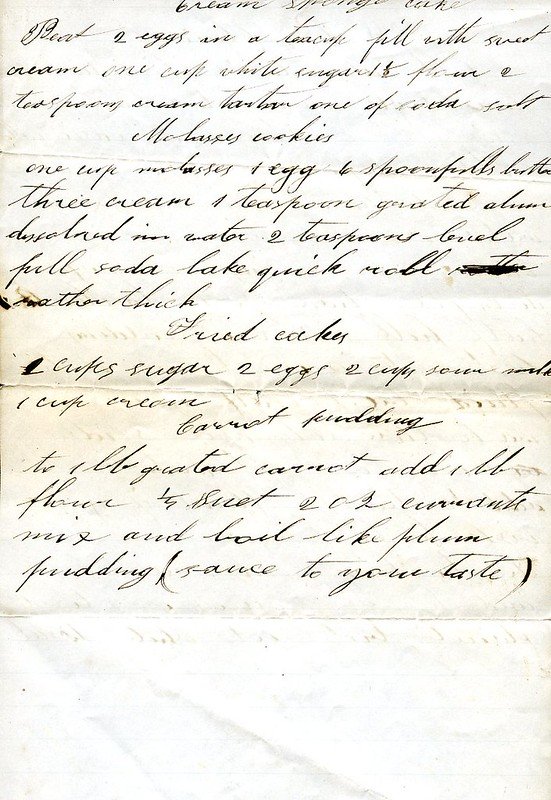 Cream sponge cake
Beat 2 eggs in a teacup fill with sweet
cream one cup white sugar 1½ flour 2
teaspoons cream tartar one of soda salt
Molasses cookies
one cup molasses 1 egg 6 spoonfulls butter
three cream 1 teaspoon grated alum
dissolved in water 2 teaspoons level
full soda bake quick roll
rather thick
Fried cakes
2 cups sugar 2 eggs 2 cups sour milk
1 cup cream
Carrot pudding
to 1 lb grated carrot add 1 lb
flour suet 2 oz currants
mix and boil like plum
pudding (sauce to your taste)